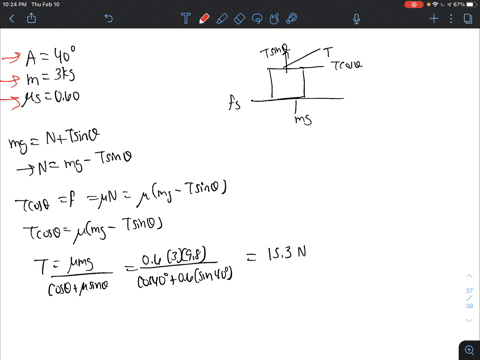 10:24 PM Thu Feb 10
67%
A = 40°
m = 3kg
μs = 0.60
Tsinθ
T
Tcosθ
fs
mg
mg = N + Tsinθ
→ N = mg - Tsinθ
Tcosθ = f = μN = μ(mg - Tsinθ)
Tcosθ = μ(mg - Tsinθ)
T = μmg / cosθ + μsinθ = 0.6(3)(9.8) / cos40° + 0.6(sin40°) = 15.3 N
37
38